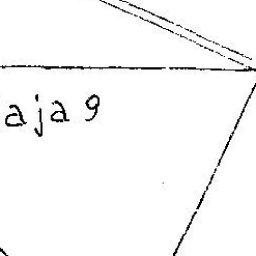 aja 9